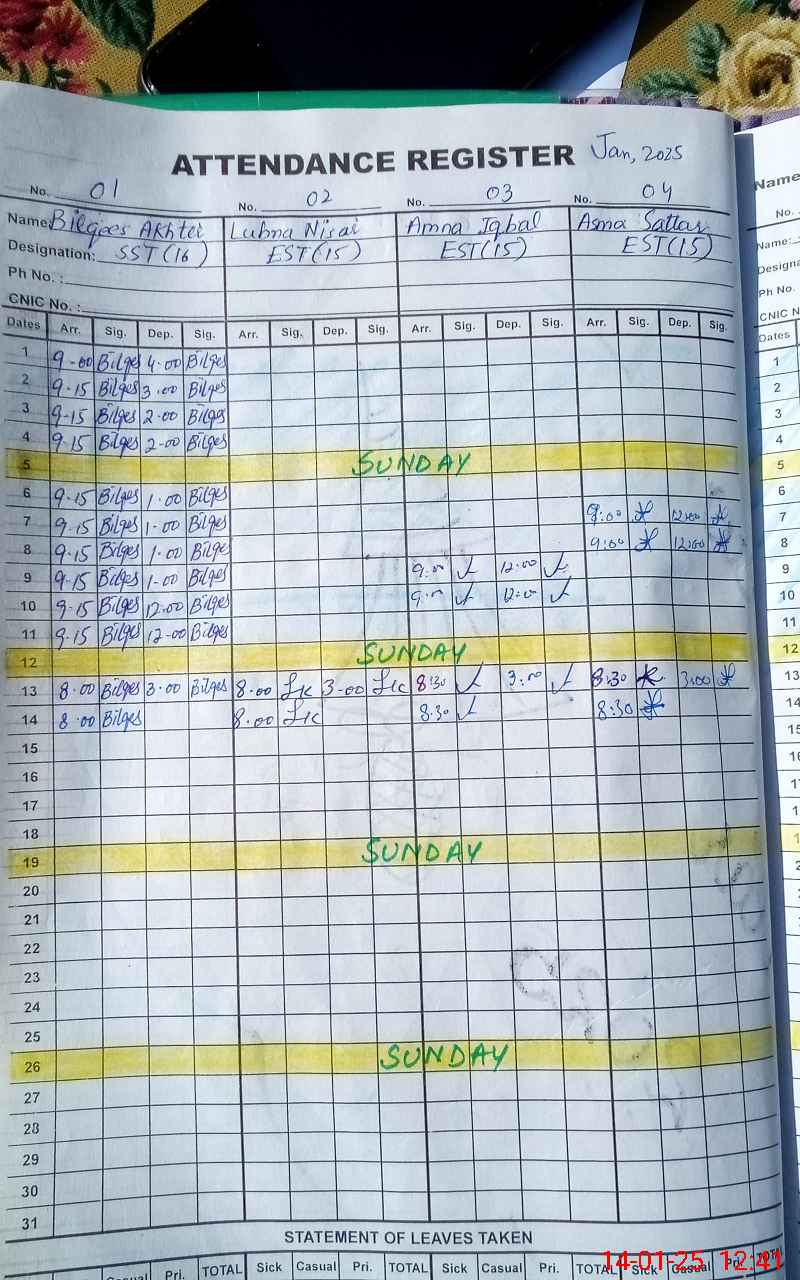 ATTENDANCE REGISTER Jan, 2025
No. 01 No. 02 No. 03 No. 04
Name: Bilqees Akhter Lubna Nisar Amna Iqbal Asma Sattar
Designation: SST (16) EST (15) EST (15) EST (15)
Ph No. :
CNIC No. :
Dates Arr. Sig. Dep. Sig. Arr. Sig. Dep. Sig. Arr. Sig. Dep. Sig. Arr. Sig. Dep. Sig.
1 9-00 Bilqes 4.00 Bilqes
2 9-15 Bilqes 3.00 Bilqes
3 9-15 Bilqes 2.00 Bilqes
4 9-15 Bilqes 2-00 Bilqes
5 SUNDAY
6 9-15 Bilqes 1.00 Bilqes
7 9-15 Bilqes 1.00 Bilqes 9:00 12:00
8 9-15 Bilqes 1.00 Bilqes 9:00 12:00
9 9-15 Bilqes 1-00 Bilqes 9:00 12:00
10 9-15 Bilqes 12.00 Bilqes 9:00 12:00
11 9-15 Bilqes 12-00 Bilqes
12 SUNDAY
13 8.00 Bilqes 3.00 Bilqes 8.00 3-00 8:30 3:00 8:30 3:00
14 8.00 Bilqes 8.00 8.30 8:30
15
16
17
18
19 SUNDAY
20
21
22
23
24
25
26 SUNDAY
27
28
29
30
31
STATEMENT OF LEAVES TAKEN
Casual Pri. TOTAL Sick Casual Pri. TOTAL Sick Casual Pri. TOTAL Sick Casual Pri.
14-01-25 12:41
Name
No.
Name:
Ph No. :
CNIC N
Dates
1
2
3
4
5
6
7
8
9
10
11
12
13
14
15